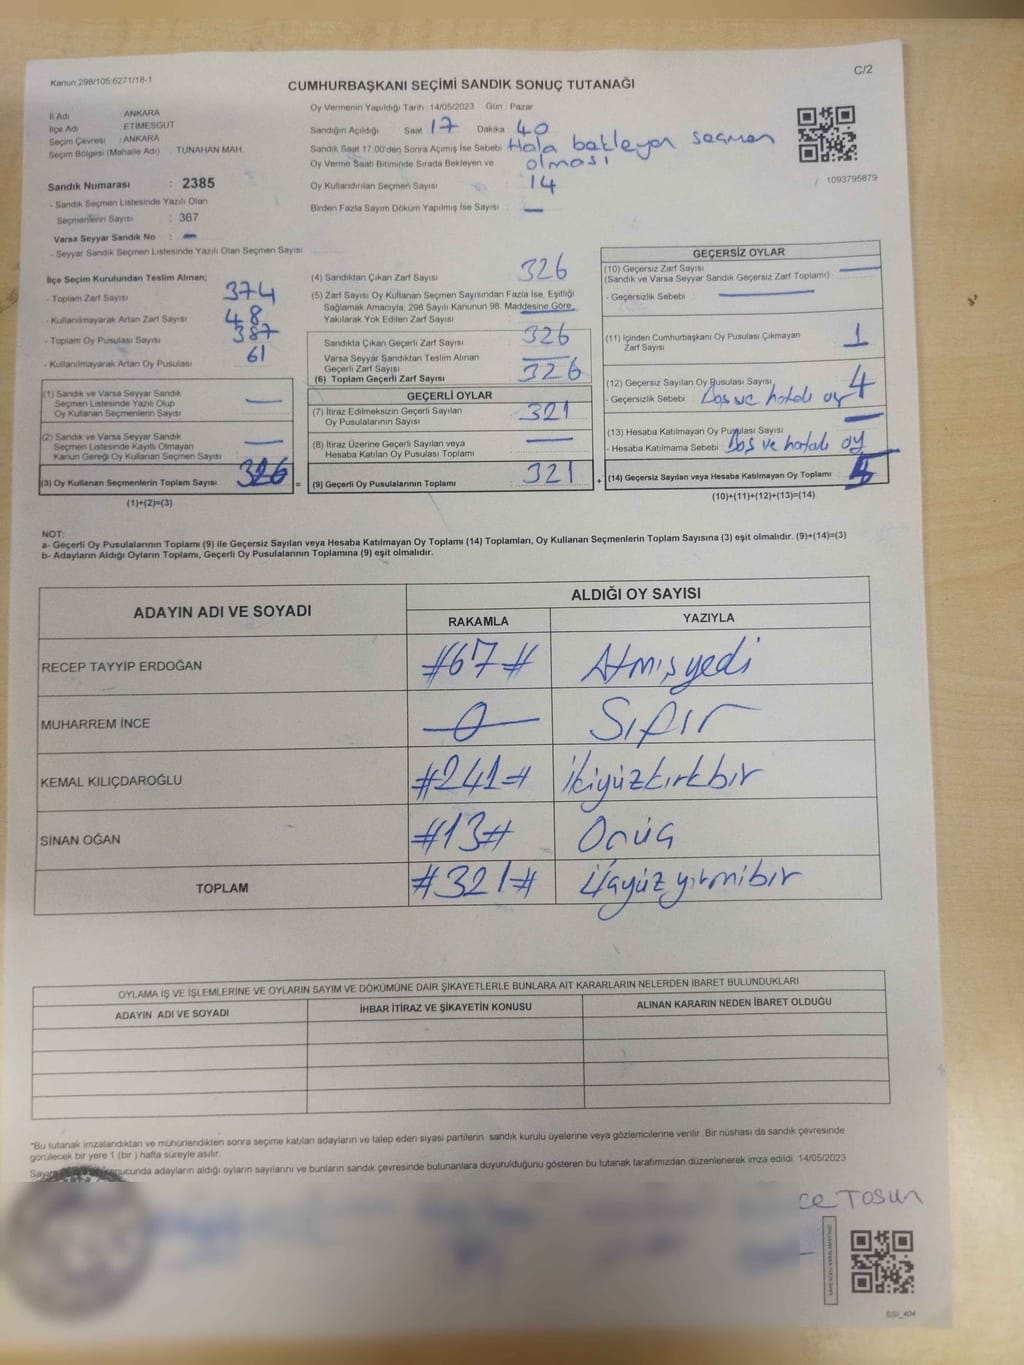 Kanun:298/105;6271/18-1
C/2
CUMHURBAŞKANI SEÇİMİ SANDIK SONUÇ TUTANAĞI
İl Adı : ANKARA
İlçe Adı : ETİMESGUT
Seçim Çevresi : ANKARA
Seçim Bölgesi (Mahalle Adı) : TUNAHAN MAH.
Oy Vermenin Yapıldığı Tarih :14/05/2023 Gün : Pazar
Sandığın Açıldığı Saat 17 Dakika 40
Sandık Saat 17:00'den Sonra Açılmış İse Sebebi Hala bekleyen seçmen
Oy Verme Saati Bitiminde Sırada Bekleyen ve olması
Oy Kullandırılan Seçmen Sayısı 14
Birden Fazla Sayım Döküm Yapılmış İse Sayısı : —
1093795879
Sandık Numarası : 2385
- Sandık Seçmen Listesinde Yazılı Olan
Seçmenlerin Sayısı : 367
Varsa Seyyar Sandık No : —
- Seyyar Sandık Seçmen Listesinde Yazılı Olan Seçmen Sayısı
İlçe Seçim Kurulundan Teslim Alınan;
- Toplam Zarf Sayısı 374
- Kullanılmayarak Artan Zarf Sayısı 48
- Toplam Oy Pusulası Sayısı 387
- Kullanılmayarak Artan Oy Pusulası 61
(1) Sandık ve Varsa Seyyar Sandık
Seçmen Listesinde Yazılı Olup —
Oy Kullanan Seçmenlerin Sayısı
(2) Sandık ve Varsa Seyyar Sandık
Seçmen Listesinde Kayıtlı Olmayan —
Kanun Gereği Oy Kullanan Seçmen Sayısı
(3) Oy Kullanan Seçmenlerin Toplam Sayısı 326 =
(1)+(2)=(3)
(4) Sandıktan Çıkan Zarf Sayısı 326
(5) Zarf Sayısı Oy Kullanan Seçmen Sayısından Fazla İse, Eşitliği
Sağlamak Amacıyla, 298 Sayılı Kanunun 98. Maddesine Göre
Yakılarak Yok Edilen Zarf Sayısı —
Sandıkta Çıkan Geçerli Zarf Sayısı 326
Varsa Seyyar Sandıktan Teslim Alınan
Geçerli Zarf Sayısı —
(6) Toplam Geçerli Zarf Sayısı 326
GEÇERLİ OYLAR
(7) İtiraz Edilmeksizin Geçerli Sayılan
Oy Pusulasının Sayısı 321
(8) İtiraz Üzerine Geçerli Sayılan veya
Hesaba Katılan Oy Pusulası Toplamı —
(9) Geçerli Oy Pusulalarının Toplamı 321 +
GEÇERSİZ OYLAR
(10) Geçersiz Zarf Sayısı —
(Sandık ve Varsa Seyyar Sandık Geçersiz Zarf Toplamı)
- Geçersizlik Sebebi : —
(11) İçinden Cumhurbaşkanı Oy Pusulası Çıkmayan
Zarf Sayısı 1
(12) Geçersiz Sayılan Oy Pusulası Sayısı 4
- Geçersizlik Sebebi : Boş ve hatalı oy
(13) Hesaba Katılmayan Oy Pusulası Sayısı —
- Hesaba Katılmama Sebebi : Boş ve hatalı oy
(14) Geçersiz Sayılan veya Hesaba Katılmayan Oy Toplamı 5
(10)+(11)+(12)+(13)=(14)
NOT:
a- Geçerli Oy Pusulalarının Toplamı (9) ile Geçersiz Sayılan veya Hesaba Katılmayan Oy Toplamı (14) Toplamları, Oy Kullanan Seçmenlerin Toplam Sayısına (3) eşit olmalıdır. (9)+(14)=(3)
b- Adayların Aldığı Oyların Toplamı, Geçerli Oy Pusulalarının Toplamına (9) eşit olmalıdır.
ADAYIN ADI VE SOYADI
ALDIĞI OY SAYISI
RAKAMLA YAZIYLA
RECEP TAYYİP ERDOĞAN #67# Atmışyedi
MUHARREM İNCE 0 Sıfır
KEMAL KILIÇDAROĞLU #241# İkiyüzkırkbir
SİNAN OĞAN #13# Onüç
TOPLAM #321# Üçyüzyirmibir
OYLAMA İŞ VE İŞLEMLERİNE VE OYLARIN SAYIM VE DÖKÜMÜNE DAİR ŞİKAYETLERLE BUNLARA AİT KARARLARIN NELERDEN İBARET BULUNDUKLARI
ADAYIN ADI VE SOYADI İHBAR İTİRAZ VE ŞİKAYETİN KONUSU ALINAN KARARIN NEDEN İBARET OLDUĞU
*Bu tutanak imzalandıktan ve mühürlendikten sonra seçime katılan adayların ve talep eden siyasi partilerin sandık kurulu üyelerine veya gözlemcilerine verilir. Bir nüshası da sandık çevresinde
görülecek bir yere 1 (bir ) hafta süreyle asılır.
sonucunda adayların aldığı oyların sayılarını ve bunların sandık çevresinde bulunanlara duyurulduğunu gösteren bu tutanak tarafımızdan düzenlenerek imza edildi. 14/05/2023
ce Tosun
SSI_404